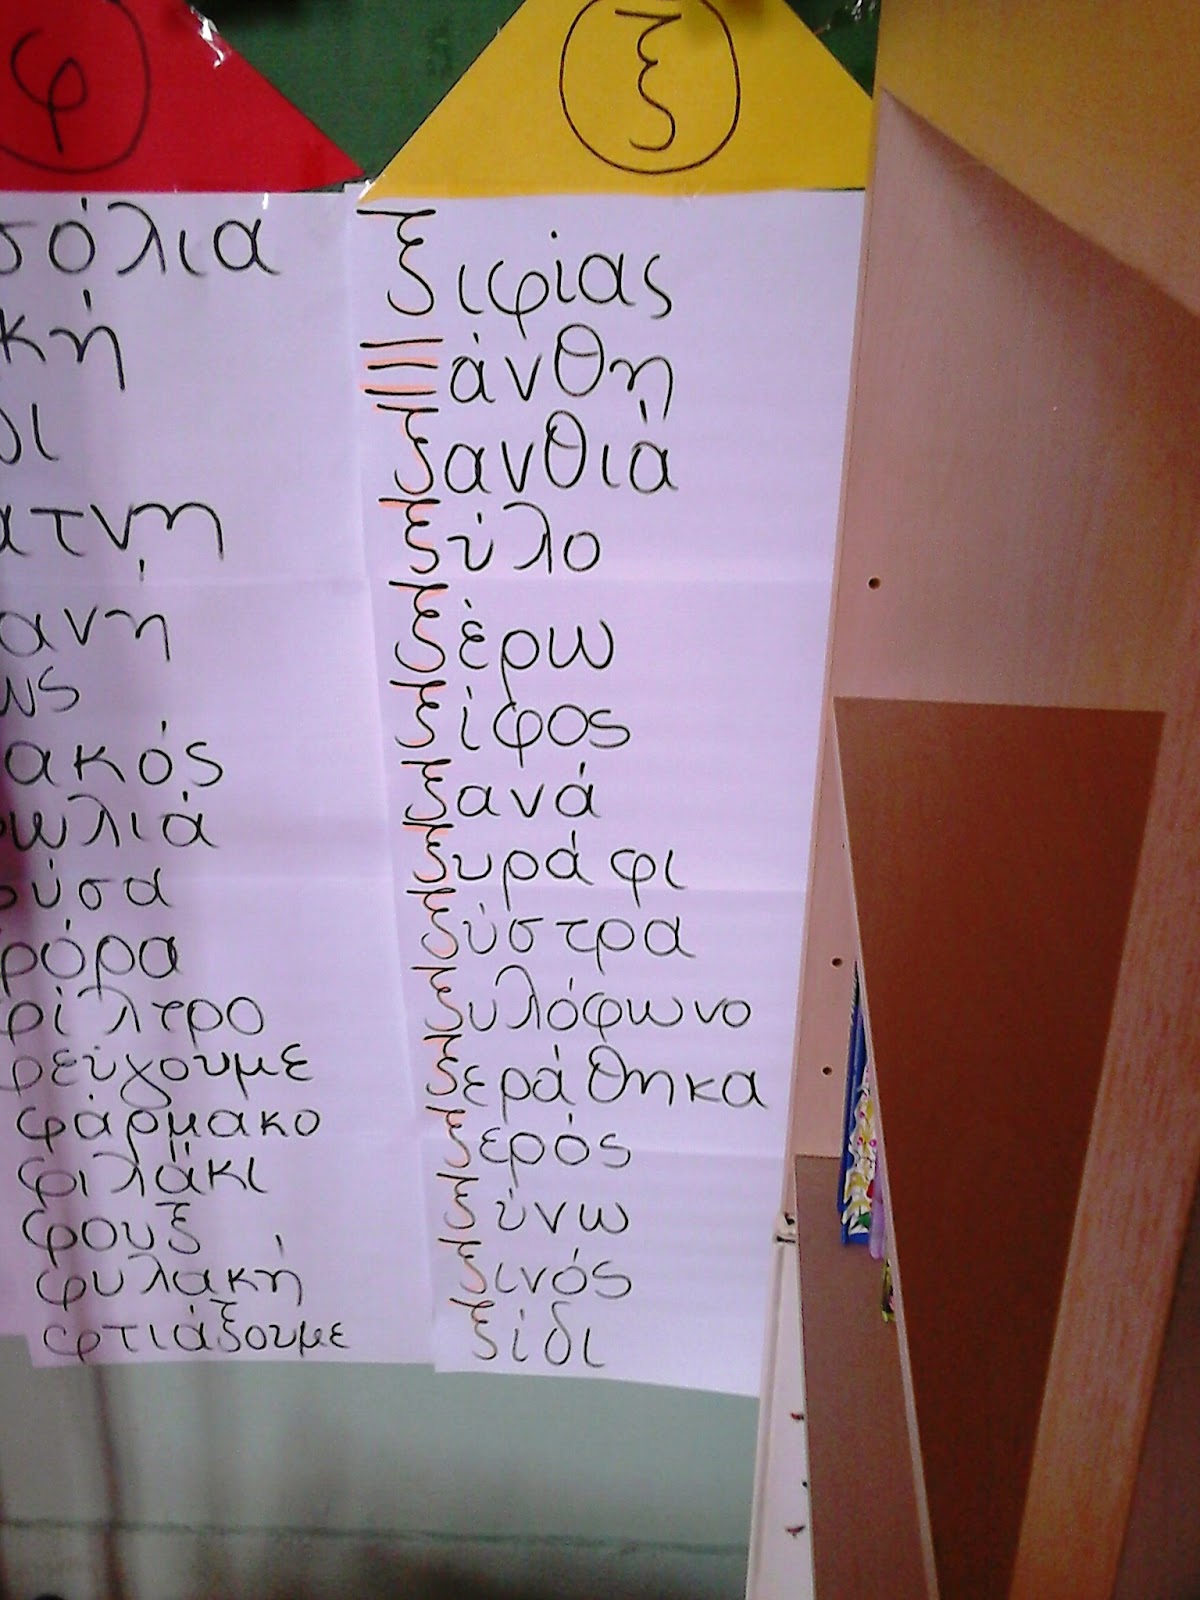 φ
σόλια
κή
ατνη
ανή
ως
ακός
ωλιά
ούσα
ρόρα
φίλτρο
φεύγουμε
φάρμακο
φιλάκι
φουξ
φυλακή
φτιάξουμε
ξ
ξιφίας
Ξάνθη
ξανθιά
ξύλο
ξέρω
ξίφος
ξανά
ξυράφι
ξύστρα
ξυλόφωνο
ξεράθηκα
ξερός
ξύνω
ξινός
ξίδι